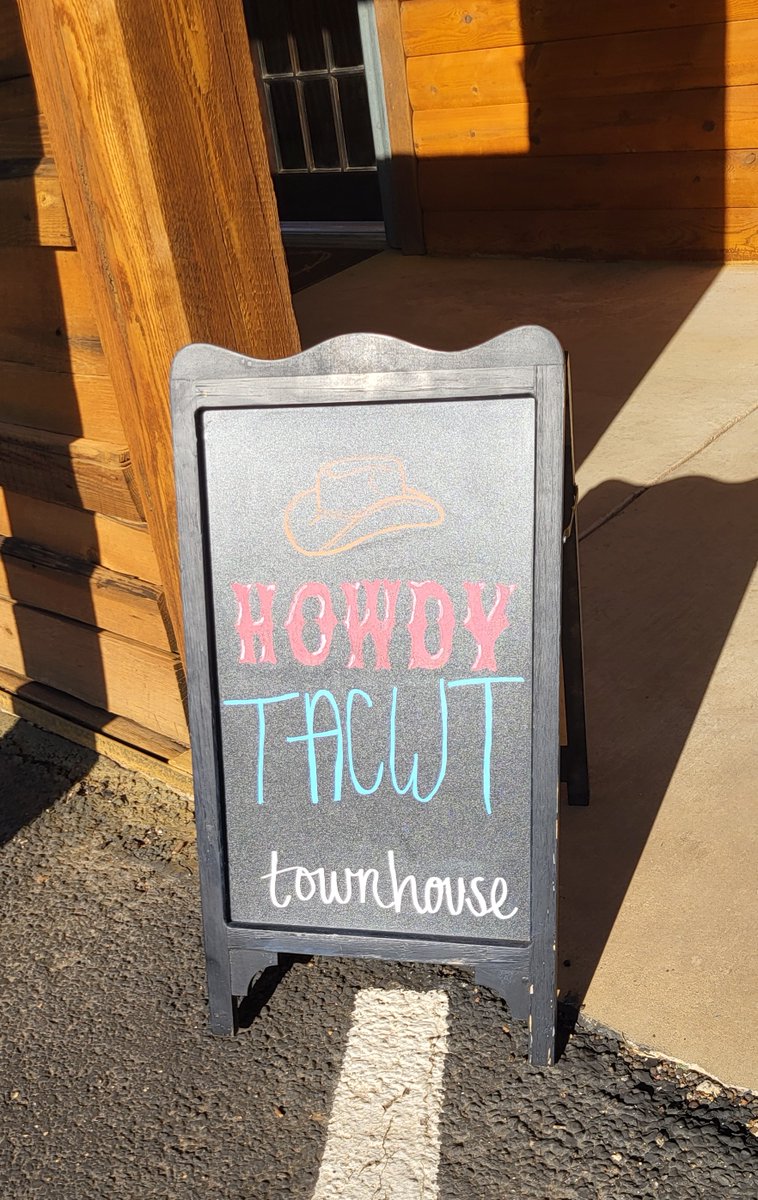 HOWDY
TACWT
townhouse